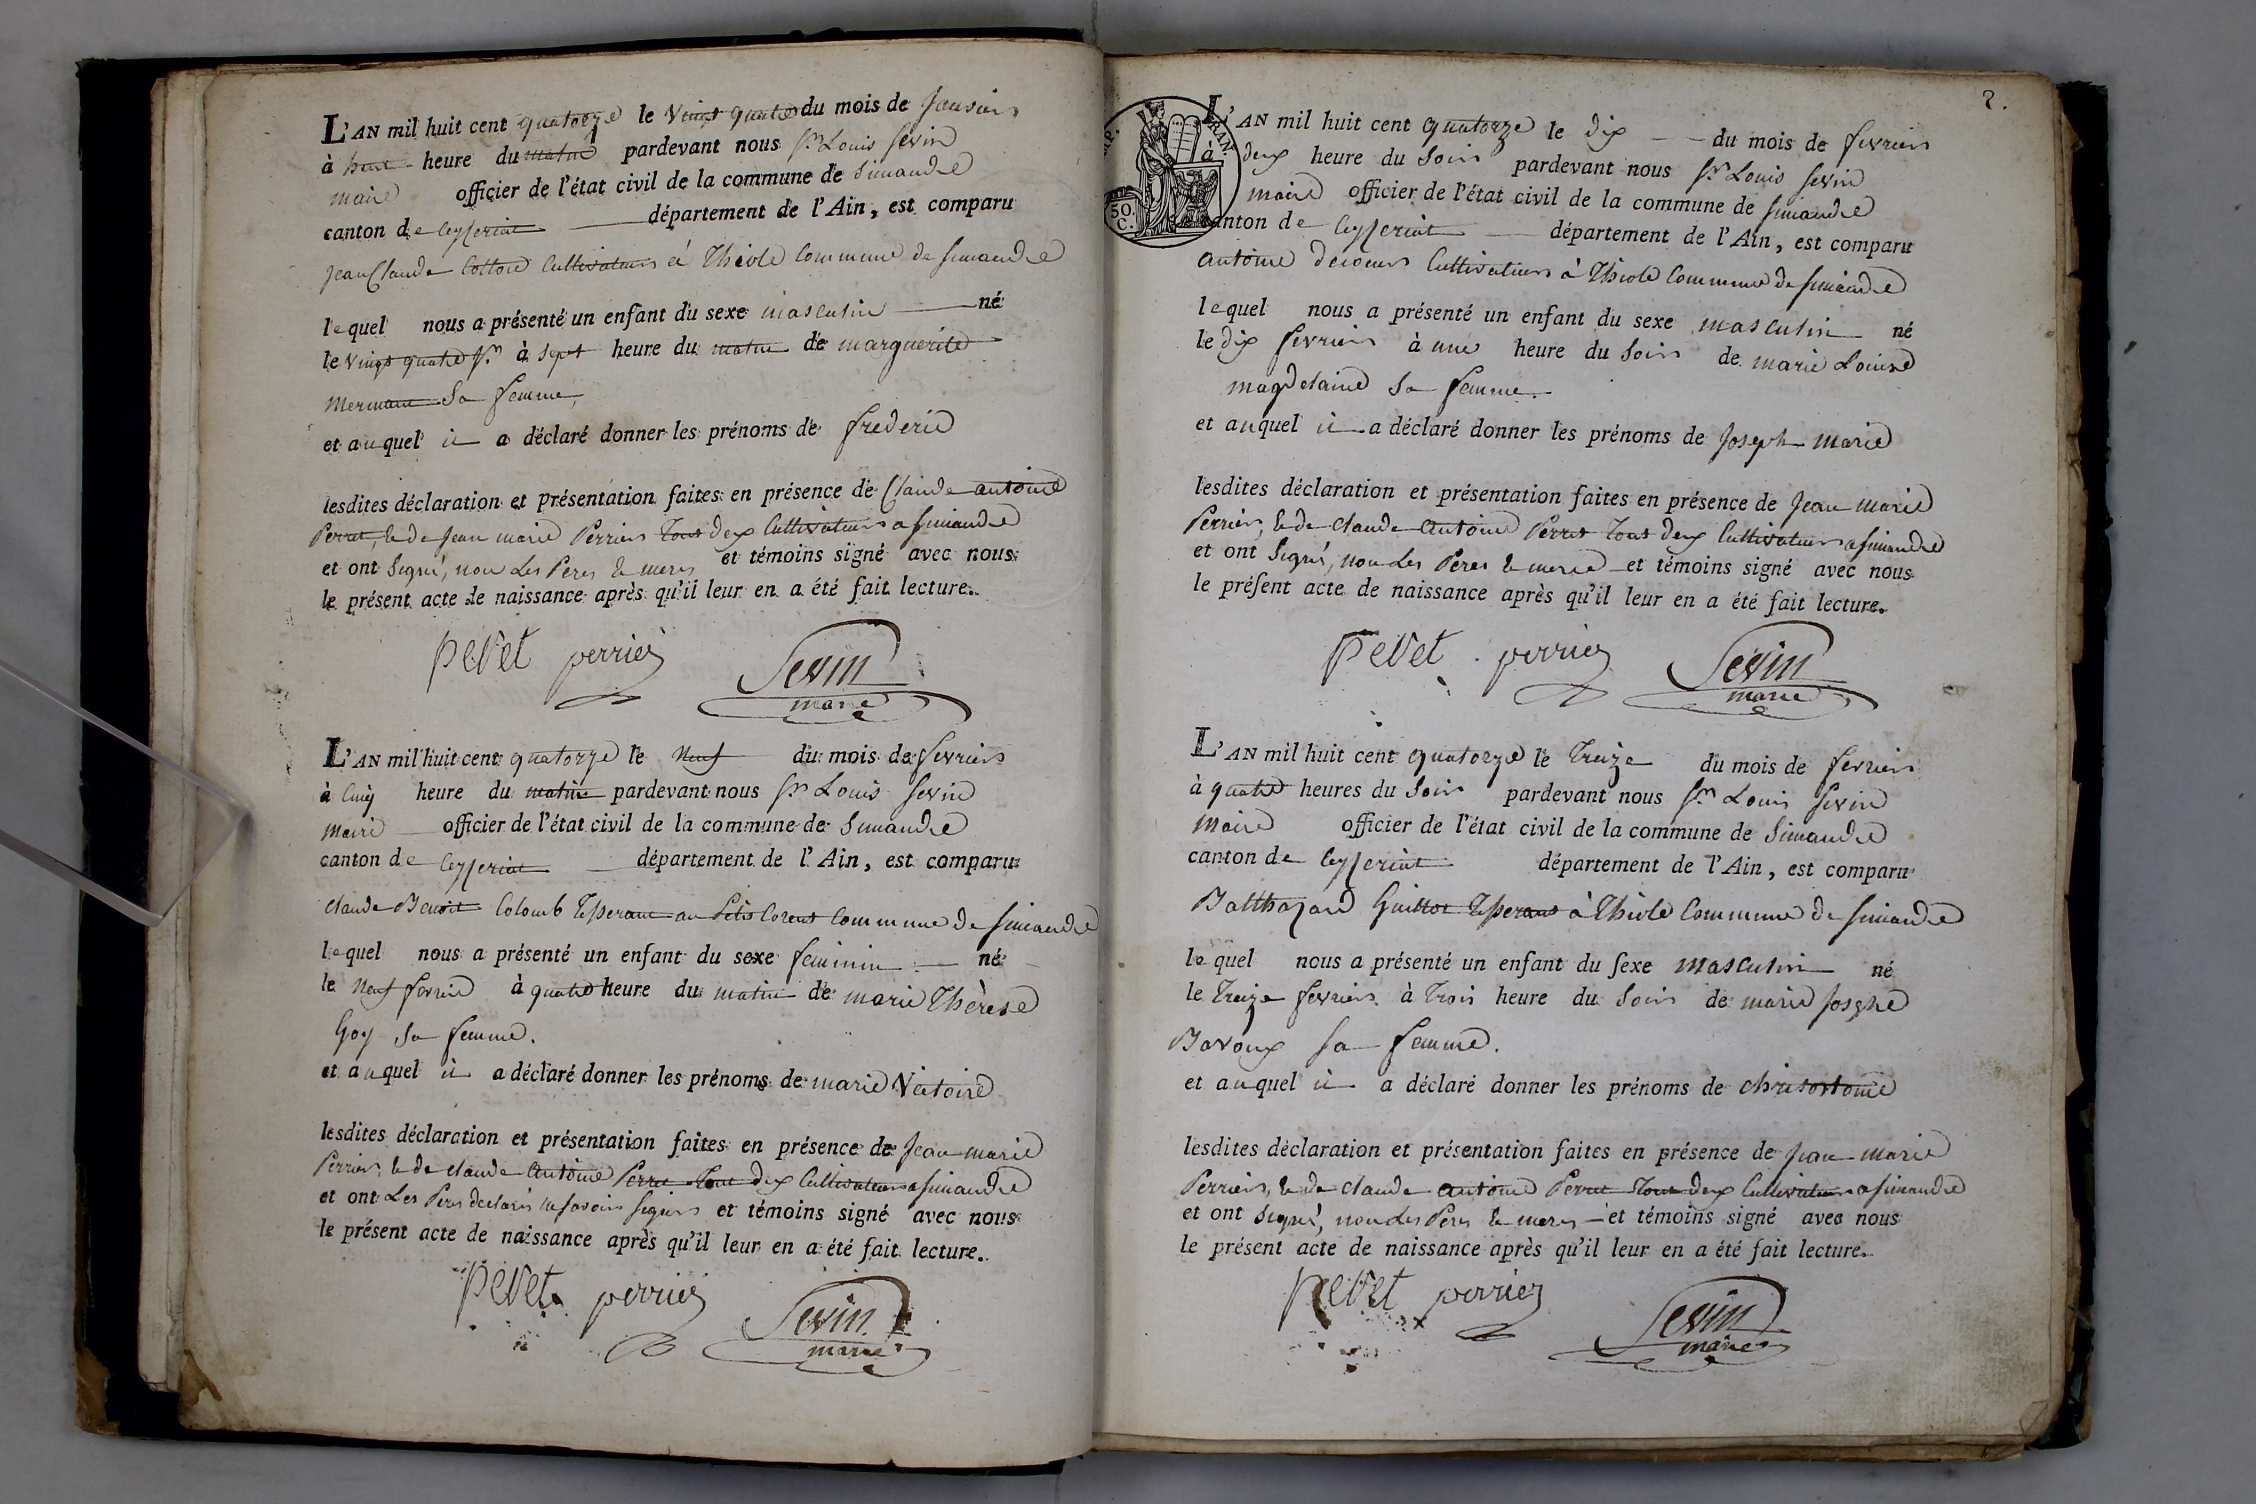 L'AN mil huit cent quatorze le vingt quatre du mois de Janvier
à huit heure du matin pardevant nous Sr. Louis Sevin
maire officier de l'état civil de la commune de Simandre
canton de Ceyzeriat département de l'Ain, est comparu
Jean Claude Cottou Cultivateur à Thiole Commune de Simandre
lequel nous a présenté un enfant du sexe masculin né
le vingt quatre Sr. à sept heure du matin de marguerite
Mermane sa femme,
et auquel il a déclaré donner les prénoms de frederic
lesdites déclaration et présentation faites en présence de Claude antoine
Perret, & de Jean marie Perrier Tout deux Cultivateurs a Simandre
et ont Signé, non Les Peres & meres et témoins signé avec nous
le présent acte de naissance après qu'il leur en a été fait lecture.
peret perrier Sevin
maire
L'AN mil huit cent quatorze le Neuf du mois de fevrier
à Cinq heure du matin pardevant nous Sr Louis Sevin
Maire officier de l'état civil de la commune de Simandre
canton de Ceyzeriat département de l'Ain, est comparu
claude Benoit Colomb Tisserant au Petit Corent Commune de Simandre
lequel nous a présenté un enfant du sexe feminin né
le Neuf fevrier à quatre heure du matin de marie Thèrese
Goy sa femme.
et auquel il a déclaré donner les prénoms de marie Victoire
lesdites déclaration et présentation faites en présence de Jean marie
Perrier, & de claude Antoine Perret Tout deux Cultivateurs a Simandre
et ont Les Peres declarés ne savoir signer et témoins signé avec nous
le présent acte de naissance après qu'il leur en a été fait lecture.
peret perrier Sevin
maire
2.
L'AN mil huit cent quatorze le dix du mois de fevrier
à deux heure du Soir pardevant nous Sr. Louis Sevin
maire officier de l'état civil de la commune de Simandre
canton de Ceyzeriat département de l'Ain, est comparu
antoine decoeur Cultivateur à Thiole Commune de Simandre
lequel nous a présenté un enfant du sexe masculin né
le dix fevrier à une heure du Soir de marie Louise
magdelaine sa femme.
et auquel il a déclaré donner les prénoms de Joseph marie
lesdites déclaration et présentation faites en présence de Jean marie
Perrier, & de claude Antoine Perret Tout deux Cultivateurs a Simandre
et ont Signé, non Les Peres & meres et témoins signé avec nous
le présent acte de naissance après qu'il leur en a été fait lecture.
peret perrier Sevin
maire
50.
C.
L'AN mil huit cent quatorze le Treize du mois de fevrier
à quatre heures du Soir pardevant nous Sr. Louis Sevin
Maire officier de l'état civil de la commune de Simandre
canton de Ceyzeriat département de l'Ain, est comparu
Balthazard Guillot Tisserant à Thiole Commune de Simandre
lequel nous a présenté un enfant du sexe masculin né
le Treize fevrier à Trois heure du Soir de marie Josephe
Bavoux sa femme.
et auquel il a déclaré donner les prénoms de chrisostome
lesdites déclaration et présentation faites en présence de Jean marie
Perrier, & de claude antoine Perret Tout deux Cultivateurs a Simandre
et ont Signé, non Les Peres & meres et témoins signé avec nous
le présent acte de naissance après qu'il leur en a été fait lecture.
peret perrier Sevin
maire